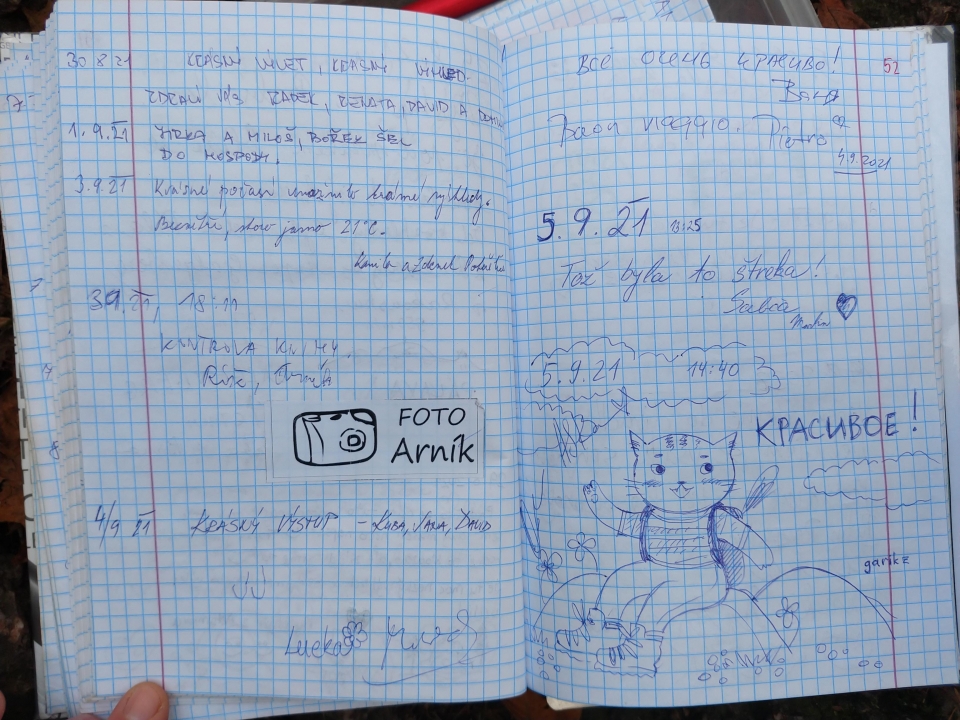 30 8 21 KRÁSNÝ VÝLET, KRÁSNÝ VÝHLED.
ZDRAVÍ VÁS RADEK, RENATA, DAVID A
1.9.21 JIRKA A MILOŠ, BOŘEK ŠEL
DO HOSPODY.
3.9.21 Krásné počasí umožnilo krásné výhledy.
Bezvětří, skoro jasno 21°C.
Kamila a Zdeněk
3.9.21, 18:11
KONTROLA KNIHY.
FOTO
Arník
4/9 21 KRÁSNÝ VÝSTUP – KUBA, JANA, DAVID
Lucka
52
Всё очень красиво!
Ваня
Buon viaggio. Pietro
4.9.2021
5.9.21 13:25
Tož byla to štreka!
Sabča
5.9.21 14:40
КРАСИВОЕ!
garikz